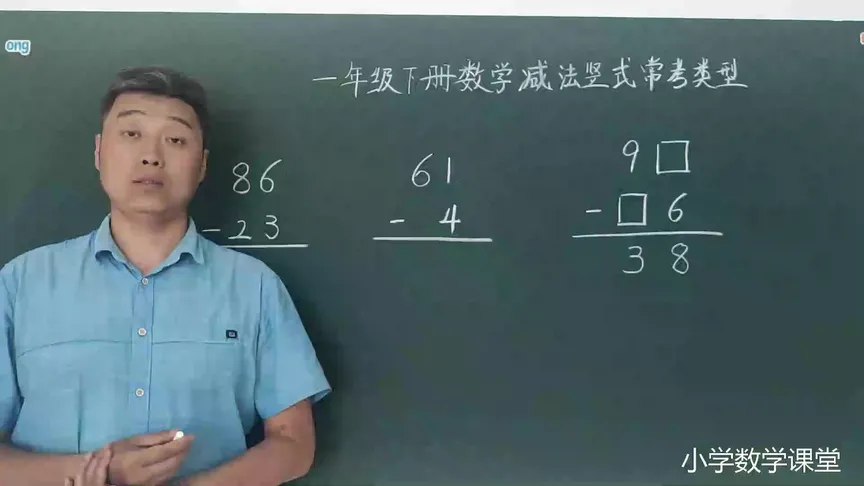 ong
一年级下册数学减法竖式常考类型
86
-23
61
- 4
9□
-□6
38
小学数学课堂